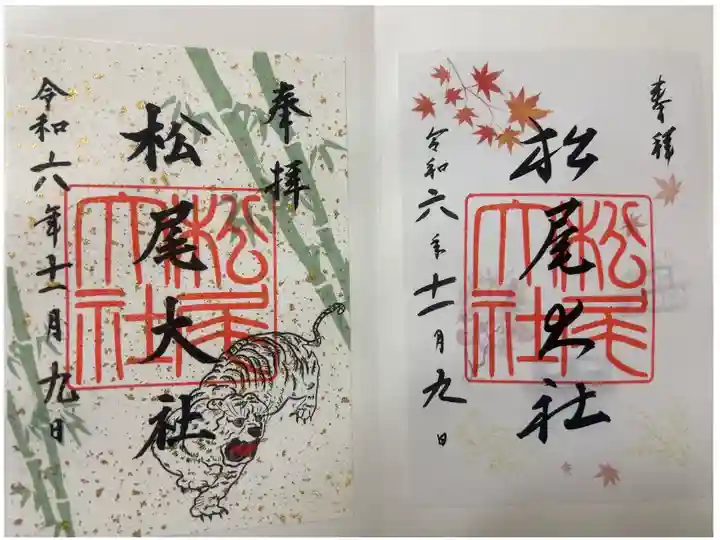 奉拝
松尾大社
令和六年十一月九日
奉拝
松尾大社
令和六年十一月九日
松尾大社
松尾大社